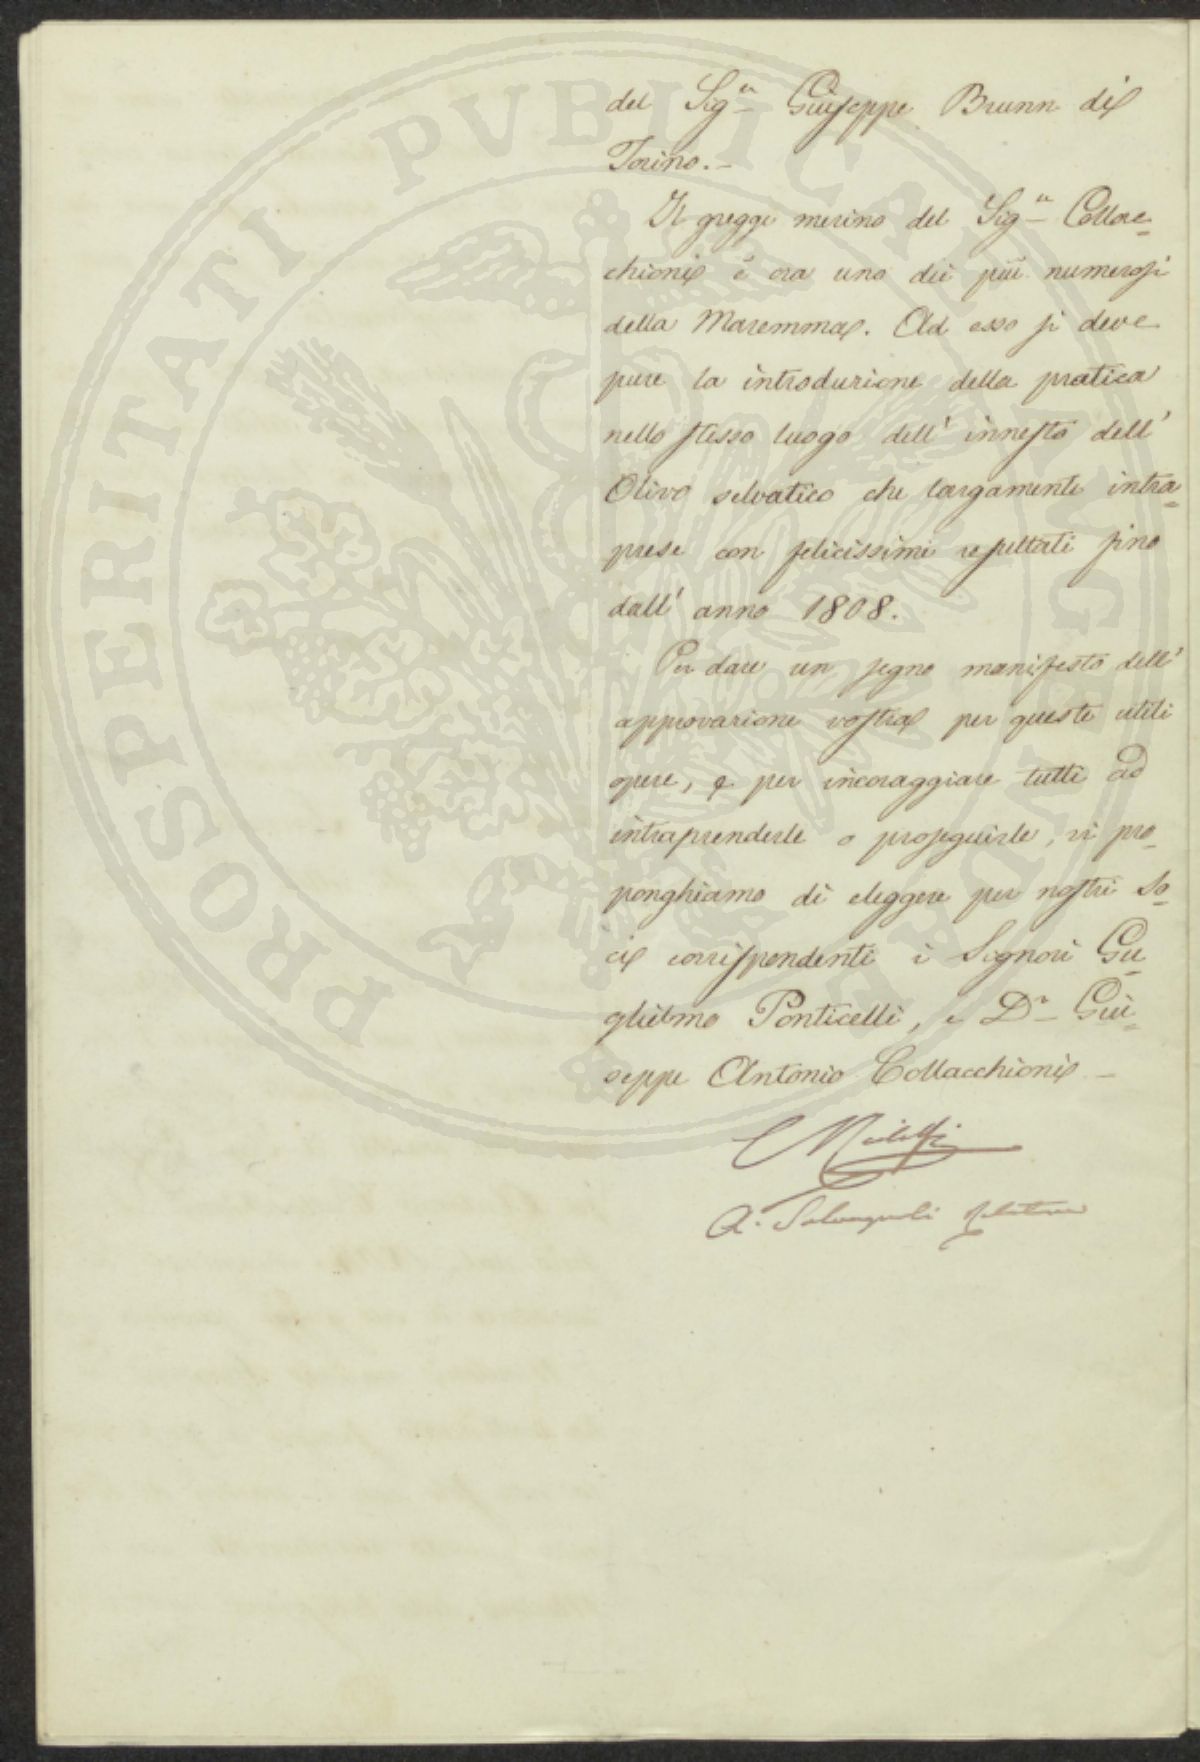 PROSPERITATI PVBLICAE AVGENDAE
del Sig.r Giuseppe Brunn di
Torino.-
Il gregge merino del Sig.r Collac-
chioni è ora uno dei più numerosi
della Maremma. Ad esso si deve
pure la introduzione della pratica
nello stesso luogo dell' innesto dell'
Olivo selvatico che largamente intra-
prese con felicissimi resultati fino
dall' anno 1808.
Per dare un segno manifesto dell'
approvazione vostra per queste utili
opere, e per incoraggiare tutti ad
intraprenderle o proseguirle, vi pro-
ponghiamo di eleggere per nostri So-
ci corrispondenti i Signori Gu-
glielmo Ponticelli, e D.r Giu-
seppe Antonio Collacchioni -
C Ridolfi
A. Salvagnoli relatore